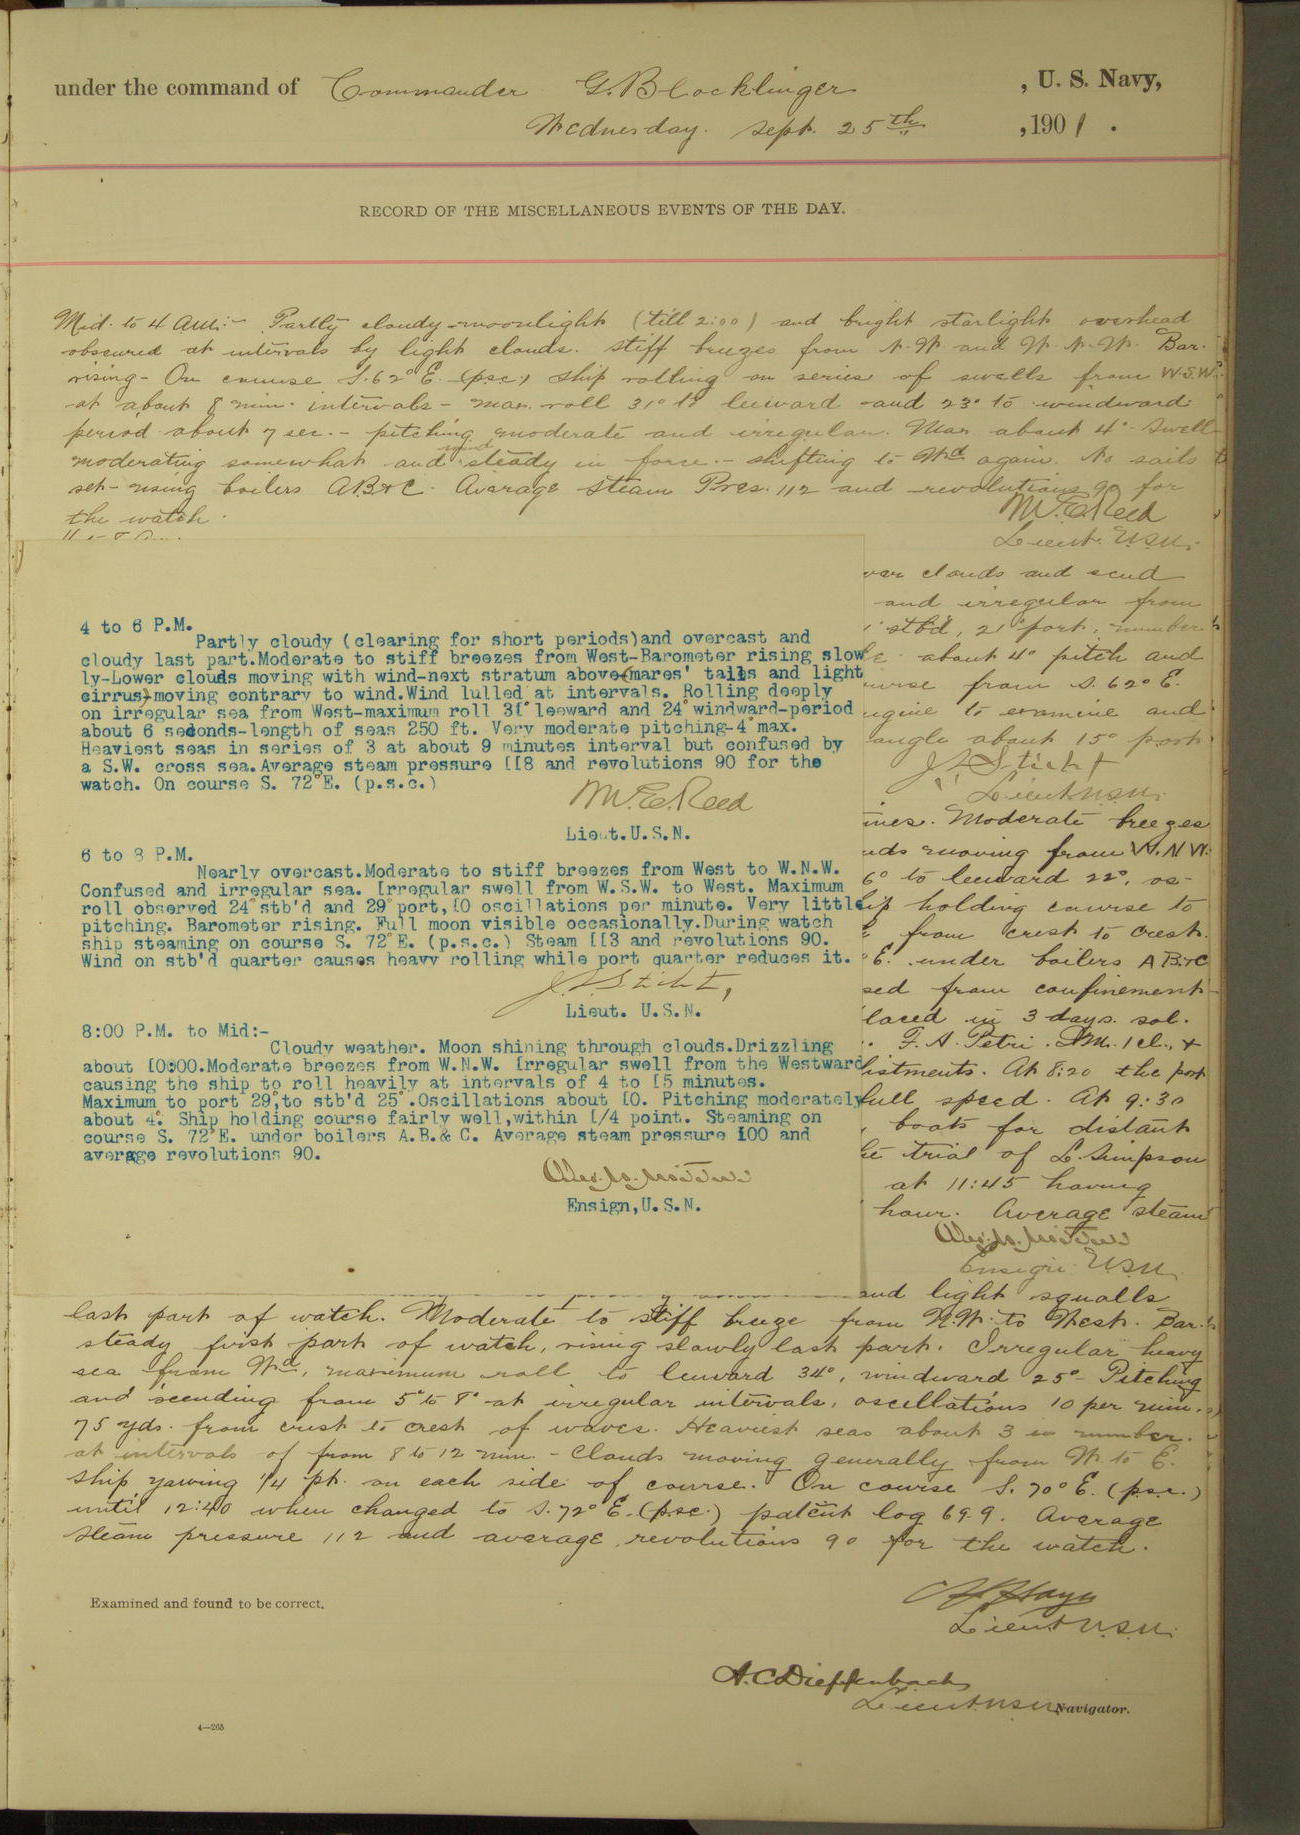 under the command of Commander G. Blocklinger , U. S. Navy,
Wednesday. Sept. 25th ,1901.
RECORD OF THE MISCELLANEOUS EVENTS OF THE DAY.
Mid. to 4 AM:- Partly cloudy moonlight (till 2:00) and bright starlight overhead
obscured at intervals by light clouds. Stiff breezes from N.W and W.N.W. Bar.
rising- On course S.62° E. (p.s.c.) Ship rolling on series of swells from W.S.W.
at about 8 min. intervals- max. roll 31° to leeward and 23° to windward
period about 7 sec.- pitching moderate and irregular. Max about 4°. Swell
moderating somewhat and wind steady in force.- shifting to Wd again. No sails
set- using boilers AB&C. Average Steam Pres. 112 and revolutions 90 for
the watch.
M.E. Reed
Lieut. U.S.N.
clouds and scud
and irregular from
stbd, 21° port, number
about 4° pitch and
from S. 62° E.
to examine and
angle about 15° port
J.L. Sticht
Lieut U.S.N.
Moderate breezes
moving from W.N.W.
6° to leeward 22°, os-
holding course to
from crest to crest.
E. under boilers AB&C
from confinement
in 3 days. sol.
F. A. Petri. 1 cl., &
At 8:20 the port
full speed. At 9:30
boats for distant
trial of L. Simpson
at 11:45 having
hour. Average steam
Ensign U.S.N.
4 to 6 P.M.
Partly cloudy (clearing for short periods)and overcast and
cloudy last part.Moderate to stiff breezes from West-Barometer rising slow
ly-Lower clouds moving with wind-next stratum above-(mares' tails and light
cirrus)-moving contrary to wind.Wind lulled at intervals. Rolling deeply
on irregular sea from West-maximum roll 3[° leeward and 24° windward-period
about 6 seconds-length of seas 250 ft. Very moderate pitching-4° max.
Heaviest seas in series of 3 at about 9 minutes interval but confused by
a S.W. cross sea.Average steam pressure [[8 and revolutions 90 for the
watch. On course S. 72°E. (p.s.c.)
M.E. Reed
Lieut.U.S.N.
6 to 8 P.M.
Nearly overcast.Moderate to stiff breezes from West to W.N.W.
Confused and irregular sea. [rregular swell from W.S.W. to West. Maximum
roll observed 24°stb'd and 29°port,[0 oscillations per minute. Very little
pitching. Barometer rising. Full moon visible occasionally.During watch
ship steaming on course S. 72°E. (p.s.c.) Steam [[3 and revolutions 90.
Wind on stb'd quarter causes heavy rolling while port quarter reduces it.
J.L. Sticht,
Lieut. U.S.N.
8:00 P.M. to Mid:-
Cloudy weather. Moon shining through clouds.Drizzling
about [0:00.Moderate breezes from W.N.W. [rregular swell from the Westward
causing the ship to roll heavily at intervals of 4 to [5 minutes.
Maximum to port 29°,to stb'd 25°.Oscillations about [0. Pitching moderately
about 4°. Ship holding course fairly well,within [/4 point. Steaming on
course S. 72°E. under boilers A.B.& C. Average steam pressure 100 and
average revolutions 90.
Ensign,U.S.N.
and light squalls
last part of watch. Moderate to stiff breeze from N.W. to West. Bar.
steady first part of watch, rising slowly last part. Irregular heavy
sea from Wd., maximum roll to leeward 34°, windward 25°- Pitching
and scending from 5° to 8° at irregular intervals, oscellations 10 per min.
75 yds. from crest to crest of waves. Heaviest seas about 3 in number.
at intervals of from 8 to 12 min.- Clouds moving generally from W. to E.
Ship yawing 1/4 pt. on each side of course. On course S. 70° E. (p.s.c.)
until 12:40 when changed to S. 72° E. (p.s.c.) patent log 69.9. Average
Steam pressure 112 and average revolutions 90 for the watch.
Lieut U.S.N.
Examined and found to be correct.
A.C. Dieffenbach
Lieut U.S.N. Navigator.
4—265